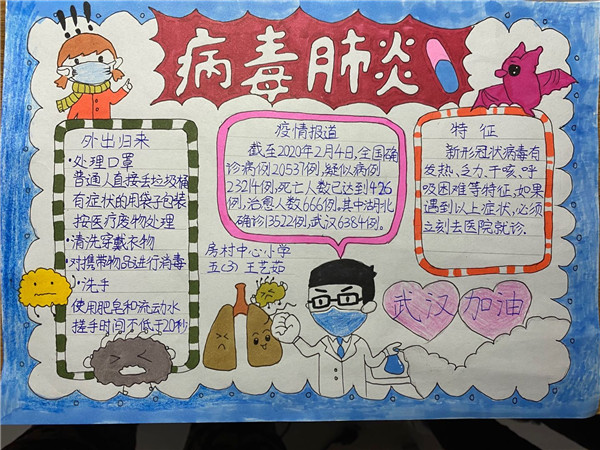 病毒肺炎
外出归来
·处理口罩
普通人直接丢垃圾桶
有症状的用袋子包装
按医疗废物处理
·清洗穿戴衣物
·对携带物品进行消毒
·洗手
使用肥皂和流动水
搓手时间不低于20秒
疫情报道
截至2020年2月4日,全国确
诊病例20537例,疑似病例
23214例,死亡人数已达到426
例,治愈人数666例,其中湖北
确诊13522例,武汉6384例.
房村中心小学
五(3) 王艺茹
特征
新形冠状病毒有
发热、乏力、干咳、呼
吸困难等特征,如果
遇到以上症状,必须
立刻去医院就诊.
武汉加油